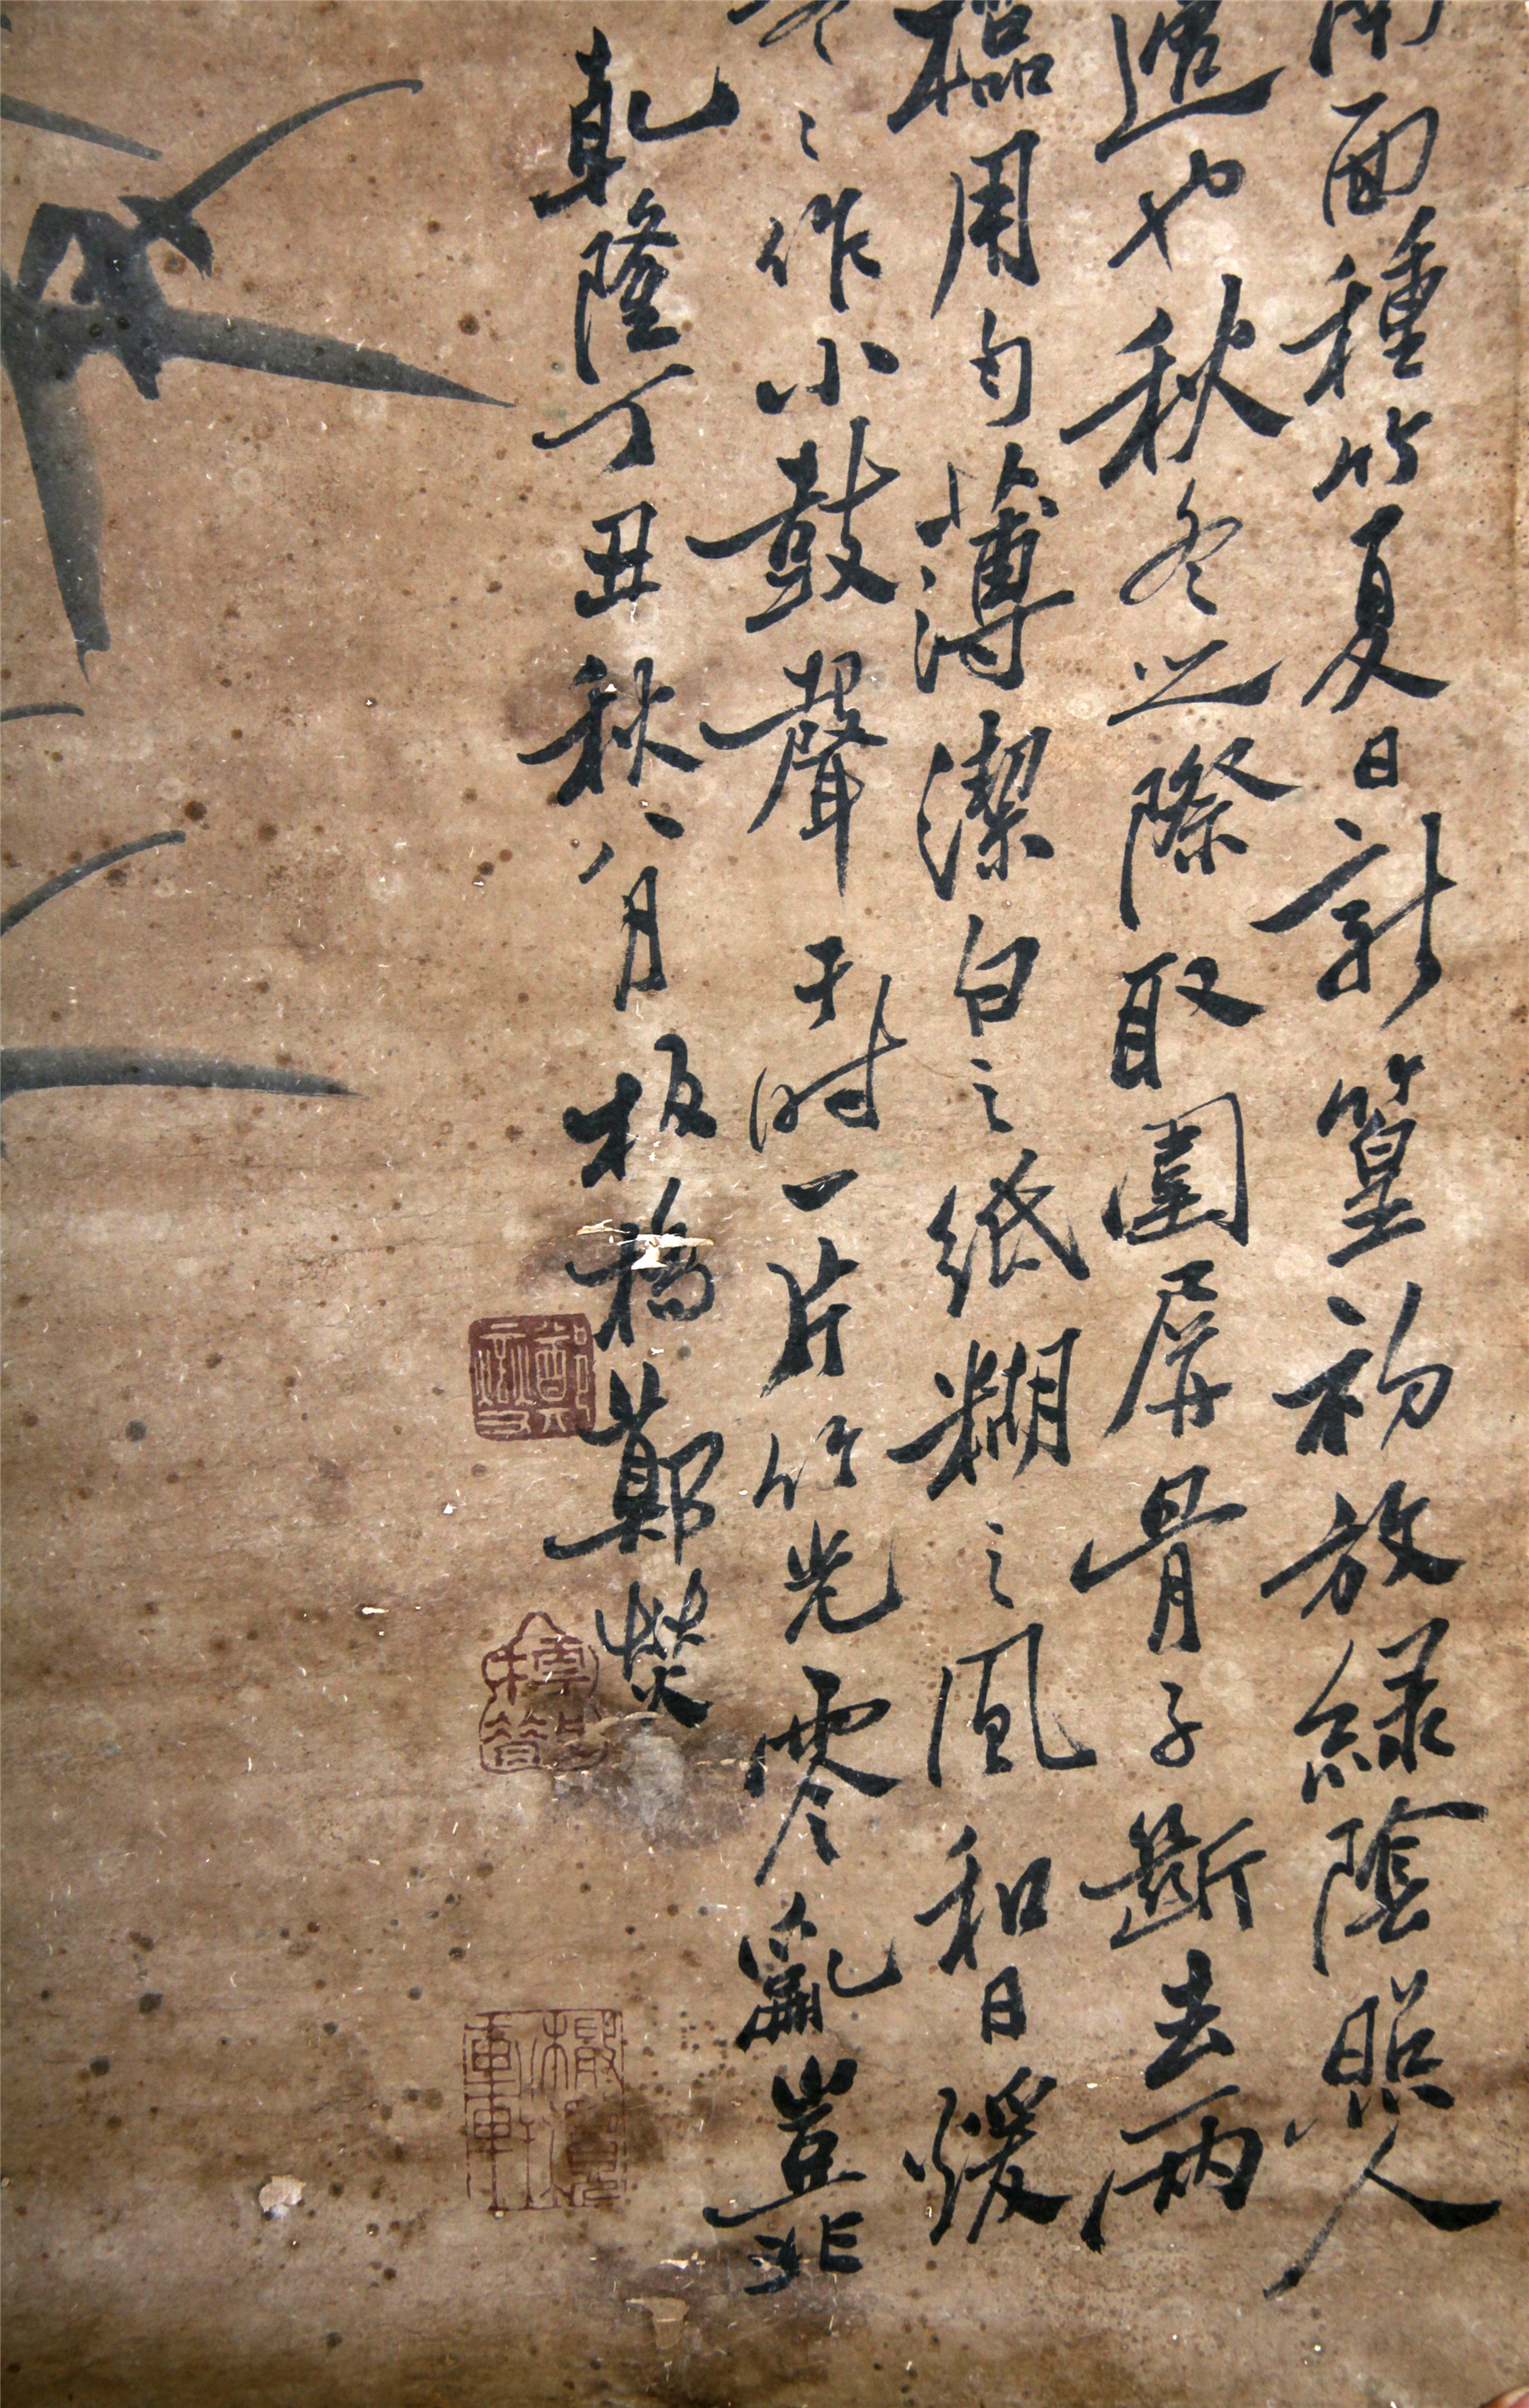 面種竹夏日新篁初放綠陰照人
適也秋冬之際取圍屏骨子斷去兩
櫺用勻薄潔白之紙糊之風和日暖
冬冬作小鼓聲于時一片竹光零亂豈非
乾隆丁丑秋八月板橋鄭燮